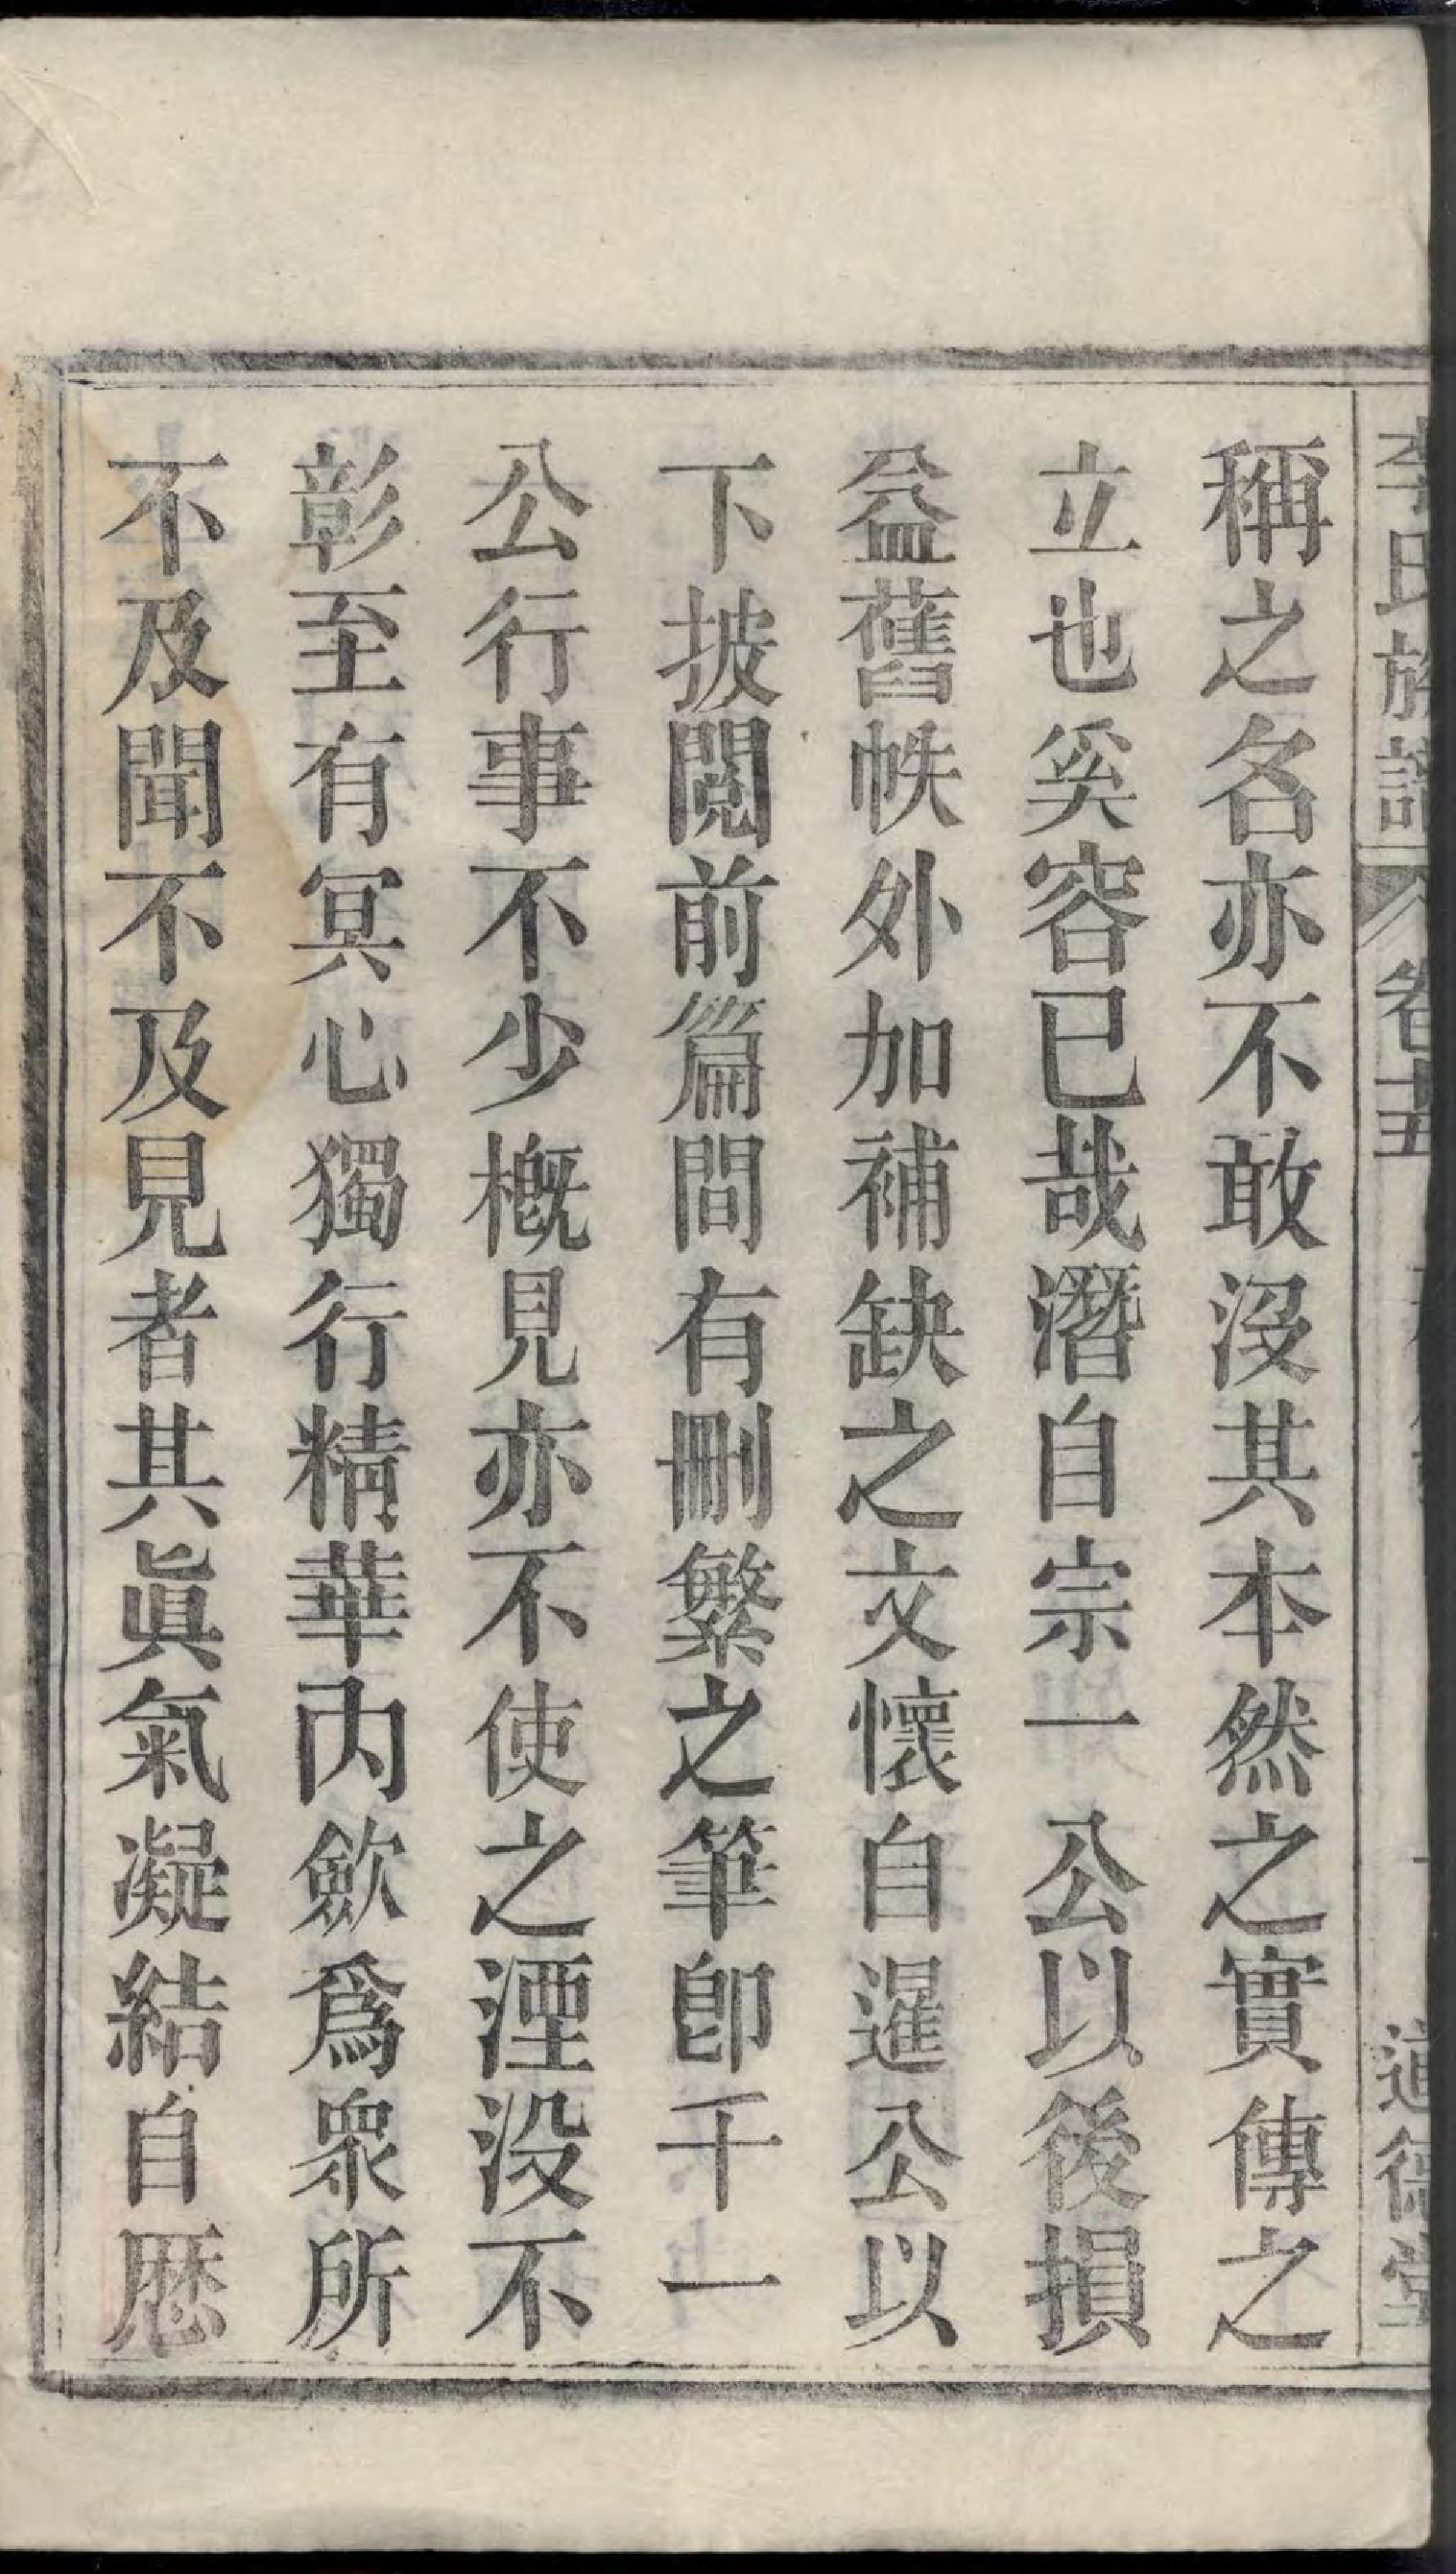 李氏族譜 卷十五 道德堂
稱之名亦不敢沒其本然之實傳之
立也奚容已哉潛自宗一公以後損
益舊帙外加補缺之文懷自暹公以
下披閱前篇間有刪繁之筆卽千一
公行事不少槪見亦不使之湮沒不
彰至有冥心獨行精華內歛爲衆所
不及聞不及見者其眞氣凝結自歴